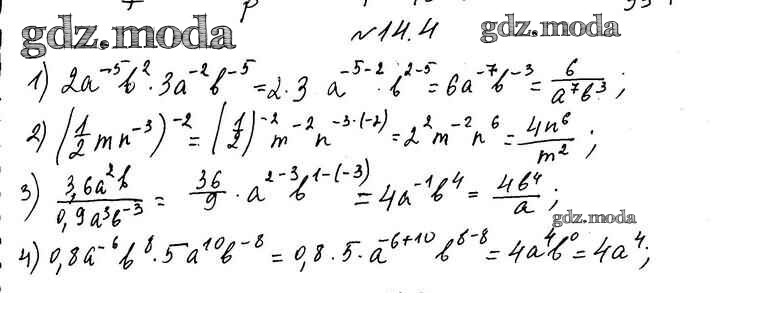 gdz.moda
№14.4
gdz.moda
1) 2a⁻⁵b² · 3a⁻²b⁻⁵ = 2·3 a⁻⁵⁻² · b²⁻⁵ = 6a⁻⁷b⁻³ = 6/(a⁷b³);
2) (1/2 mn⁻³)⁻² = (1/2)⁻² m⁻² n⁻³·⁽⁻²⁾ = 2² m⁻² n⁶ = 4n⁶/m²;
3) 3,6a²b/(0,9a³b⁻³) = 36/9 · a²⁻³ b¹⁻⁽⁻³⁾ = 4a⁻¹b⁴ = 4b⁴/a;
gdz.moda
4) 0,8a⁻⁶b⁸ · 5a¹⁰b⁻⁸ = 0,8 · 5 · a⁻⁶⁺¹⁰ b⁸⁻⁸ = 4a⁴b⁰ = 4a⁴;